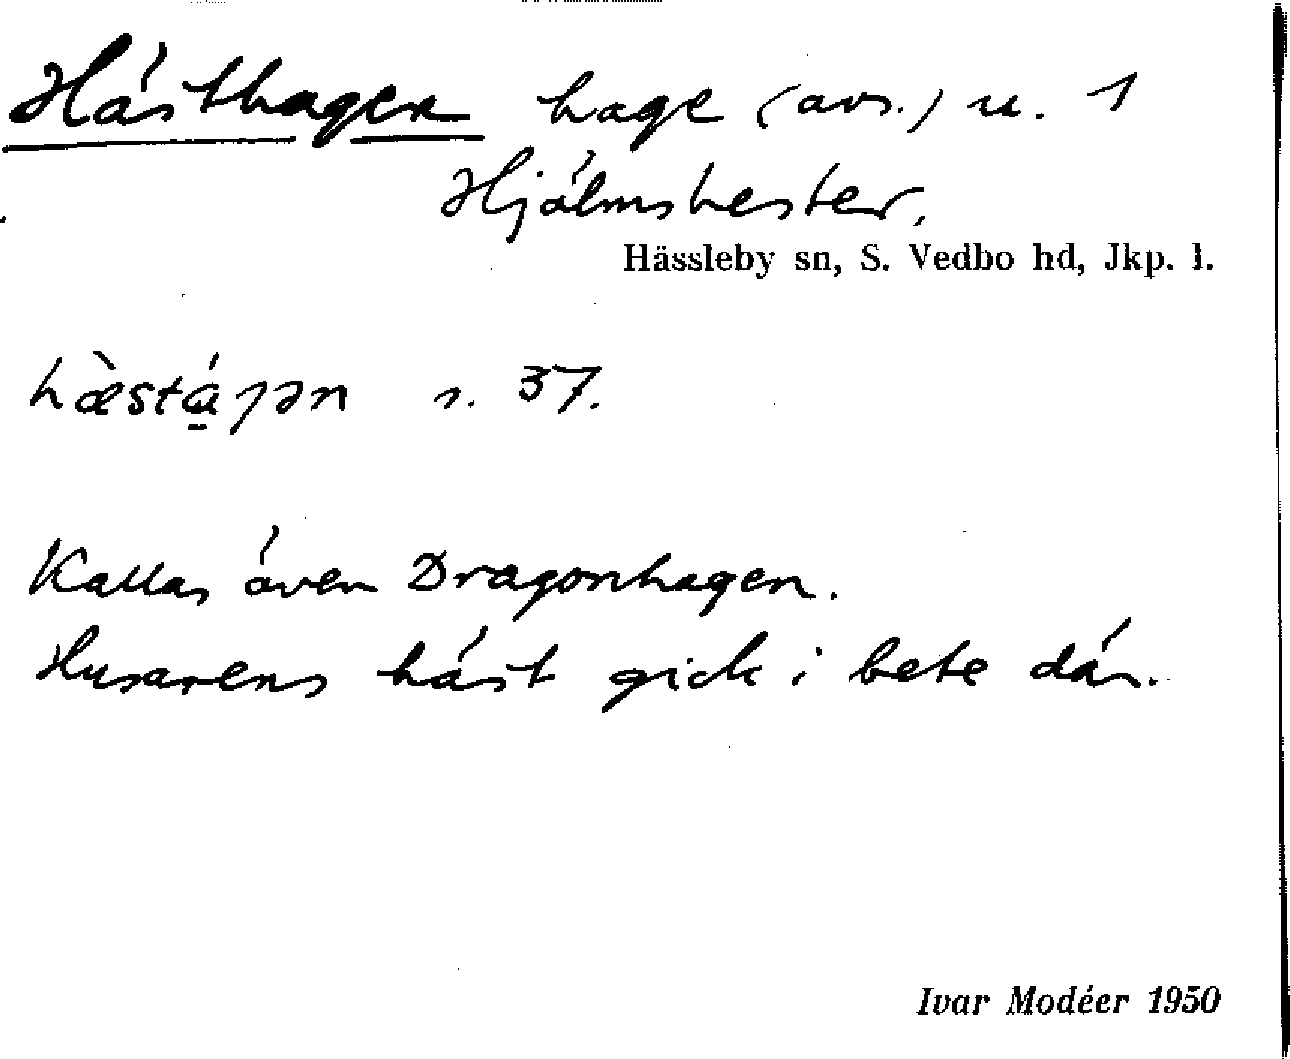 Hästhagen hage (avs.) u. 1
Hjälmshester,
Hässleby sn, S. Vedbo hd, Jkp. l.
s. 37.
Kallas även Dragonhagen.
Husarens häst gick i bete där.
Ivar Modéer 1950